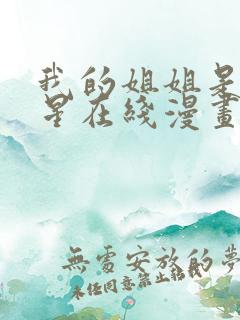 我的姐姐是
星在綫漫畫
無處安放的夢
未經同意禁止轉載